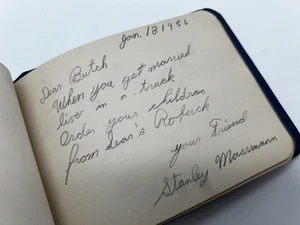 Jan. 13 1956
Dear Butch
When you get married
live in a truck
Order your children
from Sear's Robuck
your Friend
Stanley Massmann